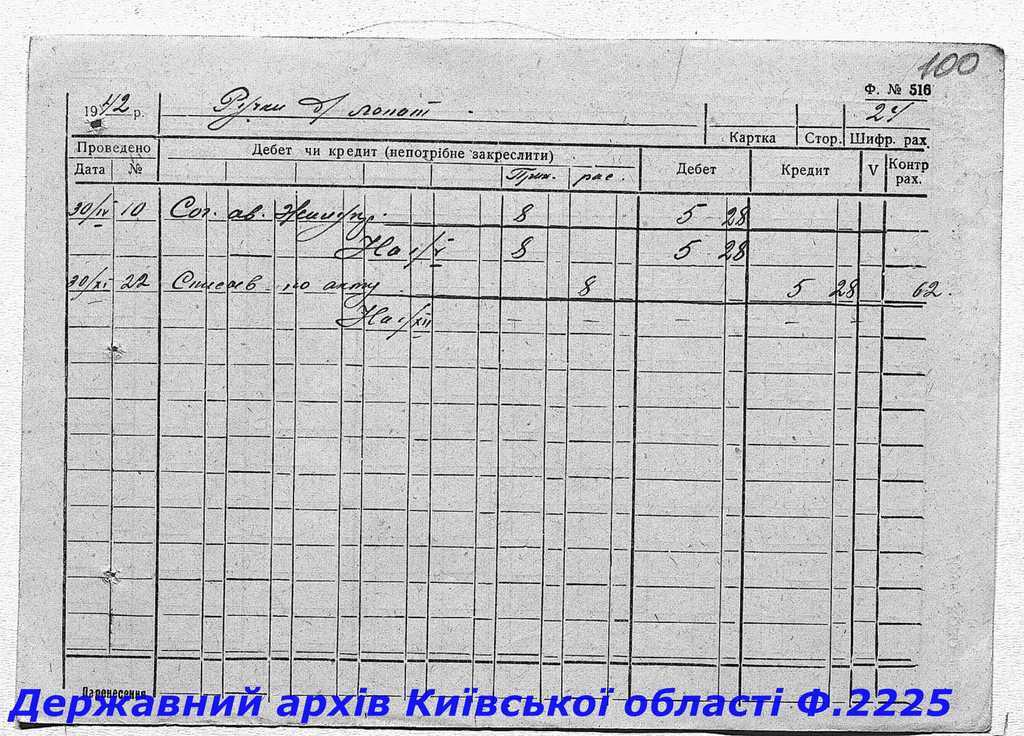 100
Ф. № 516
1942 р. Ручки д/ лопат 24
Картка Стор. Шифр. рах.
Проведено Дебет чи кредит (непотрібне закреслити) Дебет Кредит V Контр рах.
Дата № Прих. рас.
30/IV 10 Сог. ав. 8 5 28
На 1/V 8 5 28
30/XI 22 Списав по акту 8 5 28 62.
На 1/XII — — — —
Перенесення
Державний архів Київської області Ф.2225